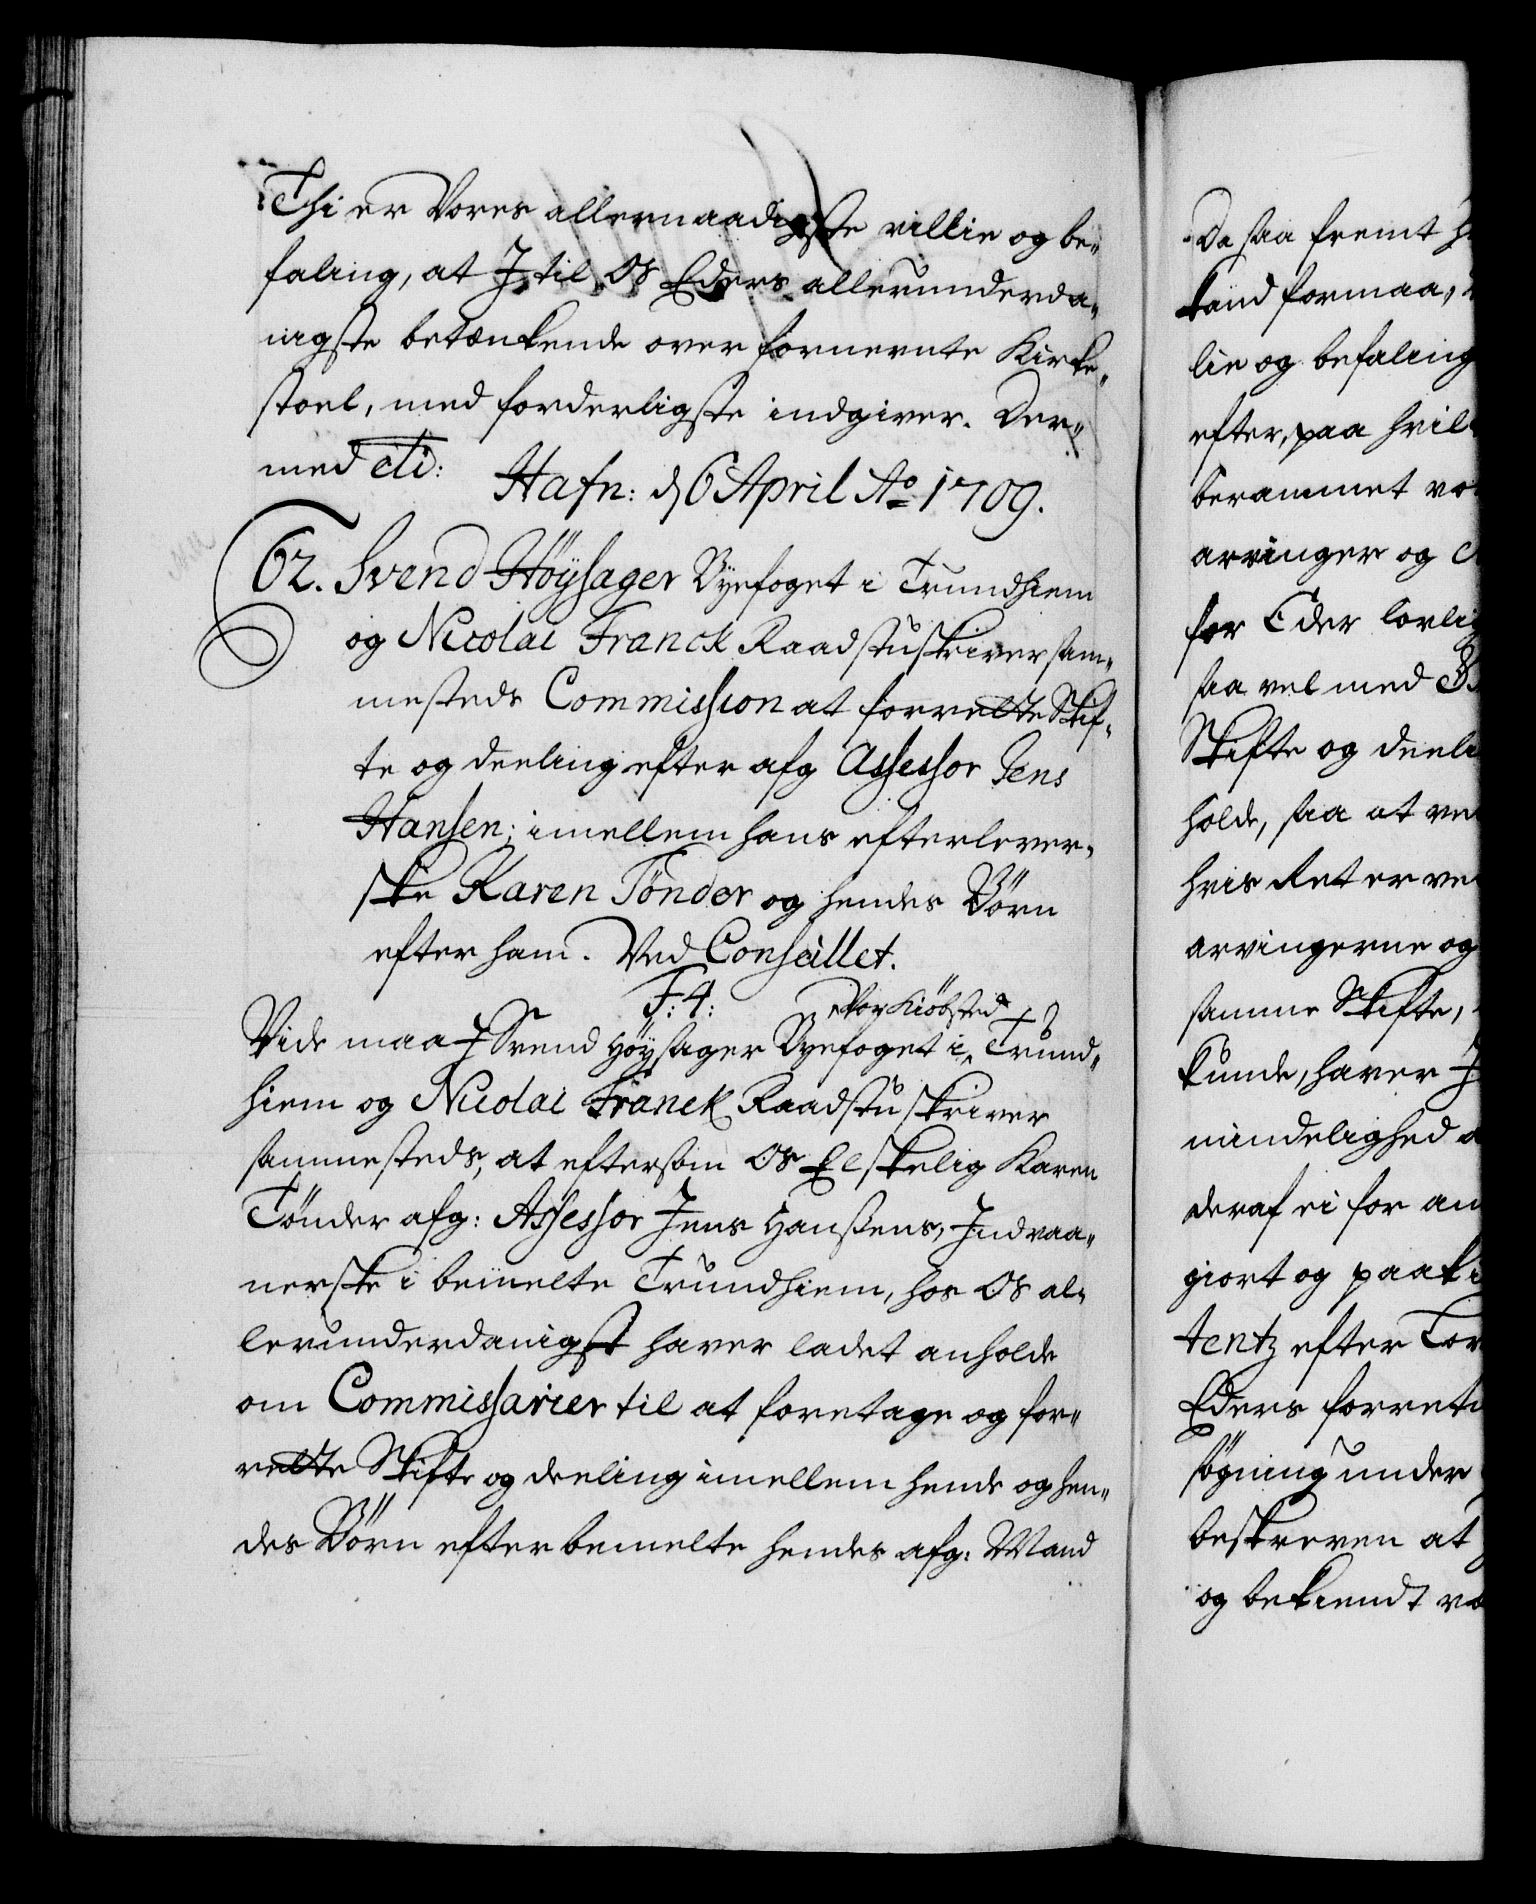 Thi er Vores allernaadigste villie og be„
faling, at I til Os Eders allerunderda„
nigste betænkende over fornevnte Kirke„
stoel, med forderligste indgiver. Der„
med etc:
Hafn: d 6 April Ao 1709.
62. Svend Höysager Byefoget i Trundhiem
og Nicolai Franck Raadstuskriver sam„
mesteds Commission at forrette Skif„
te og deeling efter afg Assessor Jens
Hansen; imellem hans efterlever„
ske Karen Tönder og hendes Börn
efter ham. Ved Conseillet.
F: 4:
Vor Kiöbsted
Vide maa I Svend Höysager Byefoget i Trund„
hiem og Nicolai Franck Raadstuskriver
sammesteds, at eftersom Os Elskelig Karen
Tönder afg: Assessor Jens Hansens, Indvaa„
nerske i bemelte Trundhiem, hos Os al„
lerunderdanigst haver ladet anholde
om Commissarier til at foretage og for„
rette Skifte og deeling imellem hende og hen„
des Börn efter bemelte hendes afg: Mand
Da saa fremt
kand formaa,
lie og befaling
efter, paa hvil
berammet
arvinger og
for Eder lovlig
saa vel med
Skifte og deeli
holde, saa at
hvis Ret er
arvingerne og
samme Skifte,
kunde, haver I
mindelighed
deraf ei for
giort og paa
tentz efter
Eders forret
søgning under
beskreven at
og bekiendt